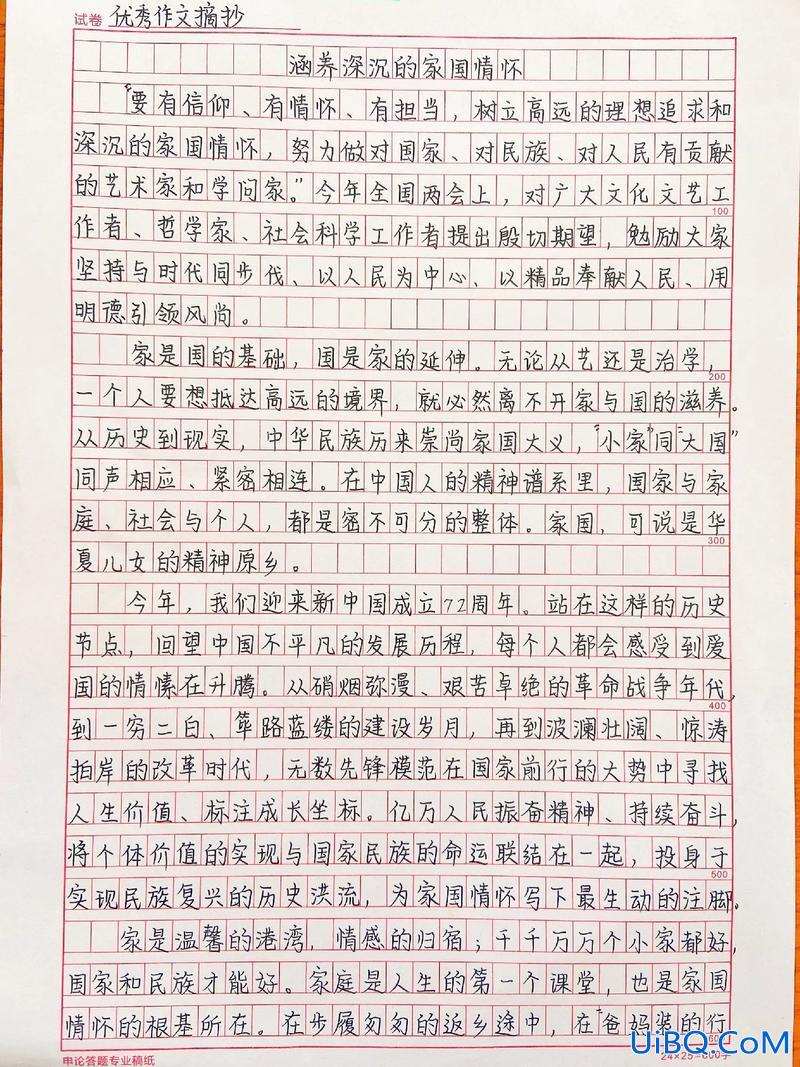 试卷 优秀作文摘抄
涵养深沉的家国情怀
“要有信仰、有情怀、有担当，树立高远的理想追求和
深沉的家国情怀，努力做对国家、对民族、对人民有贡献
的艺术家和学问家。”今年全国两会上，对广大文化文艺工
100
作者、哲学家、社会科学工作者提出殷切期望，勉励大家
坚持与时代同步伐、以人民为中心、以精品奉献人民、用
明德引领风尚。
家是国的基础，国是家的延伸。无论从艺还是治学，
200
一个人要想抵达高远的境界，就必然离不开家与国的滋养。
从历史到现实，中华民族历来崇尚家国大义，“小家”同“大国”
同声相应、紧密相连。在中国人的精神谱系里，国家与家
庭、社会与个人，都是密不可分的整体。家国，可说是华
300
夏儿女的精神原乡。
今年，我们迎来新中国成立72周年。站在这样的历史
节点，回望中国不平凡的发展历程，每个人都会感受到爱
国的情愫在升腾。从硝烟弥漫、艰苦卓绝的革命战争年代，
400
到一穷二白、筚路蓝缕的建设岁月，再到波澜壮阔、惊涛
拍岸的改革时代，无数先锋模范在国家前行的大势中寻找
人生价值、标注成长坐标。亿万人民振奋精神、持续奋斗，
将个体价值的实现与国家民族的命运联结在一起，投身于
500
实现民族复兴的历史洪流，为家国情怀写下最生动的注脚。
家是温馨的港湾，情感的归宿；千千万万个小家都好，
国家和民族才能好。家庭是人生的第一个课堂，也是家国
情怀的根基所在。在步履匆匆的返乡途中，在“爸妈装的行
600
申论答题专业稿纸
24×25=600字
UiBQ.CoM